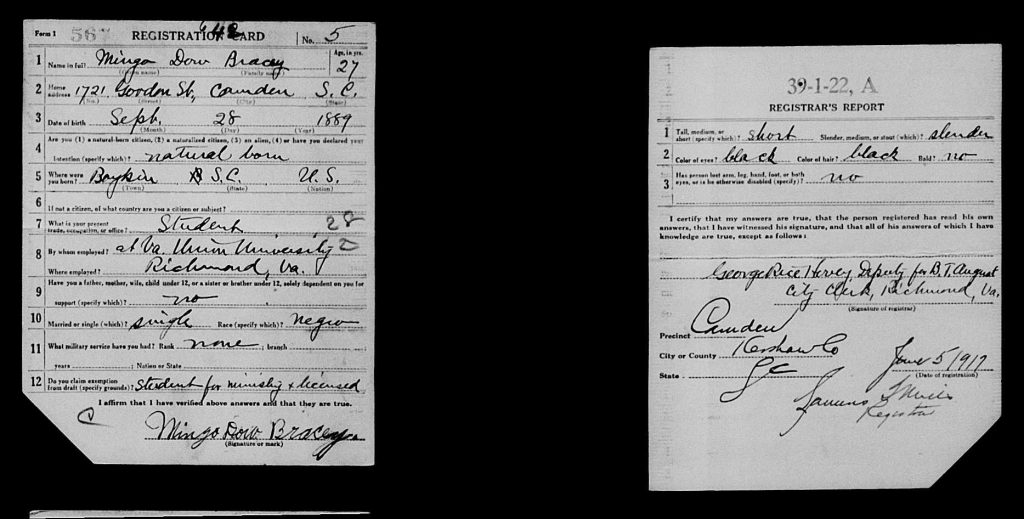 Form 1 567 REGISTRATION CARD No. 5
1 Name in full Mingo Dow Bracey Age, in yrs. 27
(Given name) (Family name)
2 Home address 1721 Gordon St, Camden S. C.
(No.) (Street) (City) (State)
3 Date of birth Sept. 28 1889
(Month) (Day) (Year)
4 Are you (1) a natural-born citizen, (2) a naturalized citizen, (3) an alien, (4) or have you declared your
intention (specify which)? natural born
5 Where were you born? Boykin S.C. U.S.
(Town) (State) (Nation)
6 If not a citizen, of what country are you a citizen or subject?
7 What is your present trade, occupation, or office? Student 28
8 By whom employed? at Va. Union University 2
Where employed? Richmond, Va.
9 Have you a father, mother, wife, child under 12, or a sister or brother under 12, solely dependent on you for
support (specify which)? no
10 Married or single (which)? single Race (specify which)? Negro
11 What military service have you had? Rank none ; branch
years ; Nation or State
12 Do you claim exemption from draft (specify grounds)? Student for ministry & licensed
I affirm that I have verified above answers and that they are true.
Mingo Dow Bracey.
(Signature or mark)
39-1-22, A
REGISTRAR'S REPORT
1 Tall, medium, or short (specify which)? short Slender, medium, or stout (which)? slender
2 Color of eyes? black Color of hair? black Bald? no
3 Has person lost arm, leg, hand, foot, or both eyes, or is he otherwise disabled (specify)? no
I certify that my answers are true, that the person registered has read his own
answers, that I have witnessed his signature, and that all of his answers of which I have
knowledge are true, except as follows:
George Rice Hovey, Deputy for B.T. August
City Clerk, Richmond, Va.
(Signature of registrar)
Precinct Camden
City or County Kershaw Co
State SC June 5, 1917
(Date of registration)
Registrar